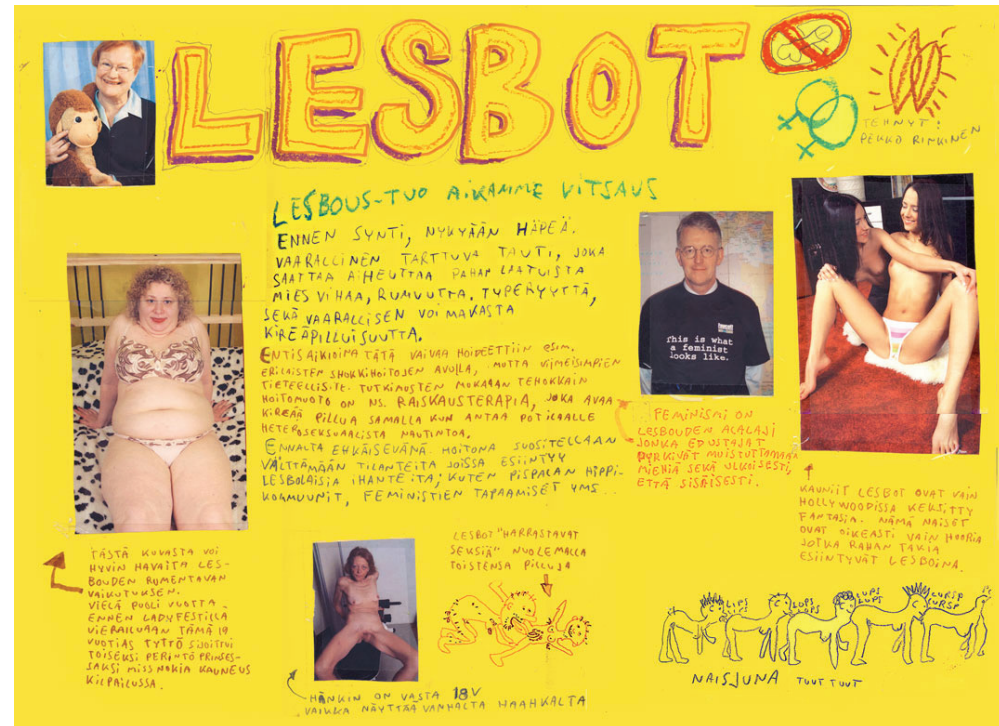 LESBOT
TEHNYT:
PEKKO RINKINEN
LESBOUS-TUO AIKAMME VITSAUS
ENNEN SYNTI, NYKYÄÄN HÄPEÄ.
VAARALLINEN TARTTUVA TAUTI, JOKA
SAATTAA AIHEUTTAA PAHAN LAATUISTA
MIES VIHAA, RUMUUTTA, TYPERYYTTÄ,
SEKÄ VAARALLISEN VOIMAKASTA
KIREÄPILLUISUUTTA.
ENTISAIKIOINA TÄTÄ VAIVAA HOIDETTIIN ESIM.
ERILAISTEN SHOKKIHOITOJEN AVULLA, MUTTA VIIMEISIMPIEN
TIETEELLISTE TUTKIMUSTEN MUKAAN TEHOKKAIN
HOITOMUOTO ON NS. RAISKAUSTERAPIA, JOKA AVAA
KIREÄÄ PILLUA SAMALLA KUN ANTAA POTILAALLE
HETEROSEKSUAALISTA NAUTINTOA.
ENNALTA EHKÄISEVÄNÄ HOITONA SUOSITELLAAN
VÄLTTÄMÄÄN TILANTEITA JOISSA ESIINTYY
LESBOLAISIA IHANTEITA, KUTEN PISPALAN HIPPI-
KOMMUUNIT, FEMINISTIEN TAPAAMISET YMS...
This is what
a feminist
looks like.
FEMINISMI ON
LESBOUDEN ALALAJI
JONKA EDUSTAJAT
PYRKIVÄT MUISTUTTAMAAN
MIEHIÄ SEKÄ ULKOISESTI,
ETTÄ SISÄISESTI.
KAUNIIT LESBOT OVAT VAIN
HOLLYWOODISSA KEKSITTY
FANTASIA. NÄMÄ NAISET
OVAT OIKEASTI VAIN HUORIA
JOTKA RAHAN TAKIA
ESIINTYVÄT LESBOINA.
TÄSTÄ KUVASTA VOI
HYVIN HAVAITA LES-
BOUDEN RUMENTAVAN
VAIKUTUKSEN.
VIELÄ PUOLI VUOTTA
ENNEN LADYFESTILLA
VIERAILUAAN TÄMÄ 19
VUOTIAS TYTTÖ SIJOITTUI
TOISEKSI PERINTÖ PRINSES-
SAKSI MISS NOKIA KAUNEUS
KILPAILUSSA.
LESBOT "HARRASTAVAT
SEKSIÄ" NUOLEMALLA
TOISTENSA PILLUJA
HÄNKIN ON VASTA 18V
VAIKKA NÄYTTÄÄ VANHALTA HAAHKALTA
LIPS LIPS
LUPS LUPS
LOPS LOPS
LUPS LOPS
LURSP LURSP
NAISJUNA TUUT TUUT